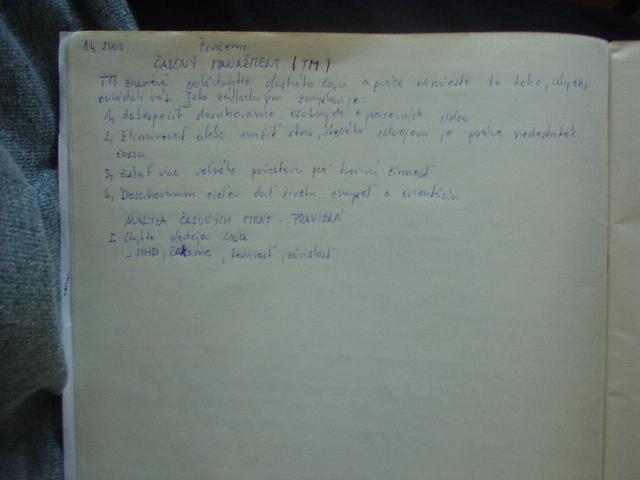 ČASOVÝ MANAŽMENT (TM)
TM znamená ovládnutie vlastného času a práce namiesto toho, aby oni
ovládali vás. Jeho základným zmyslom je
1, Zabezpečiť dosahovanie osobných a pracovných cieľov
2, Eliminovať alebo znížiť stres, ktorého zdrojom je práve nedostatok
času
3, Získať viac voľného priestoru pre tvorivú činnosť
4, Dosahovaním cieľov dať životu zmysel a orientáciu
ANALÝZA ČASOVÝCH STRÁT - PRAVIDLÁ
I Chyťte zlodejov času
- MHD, čakanie, lenivosť, závislosť